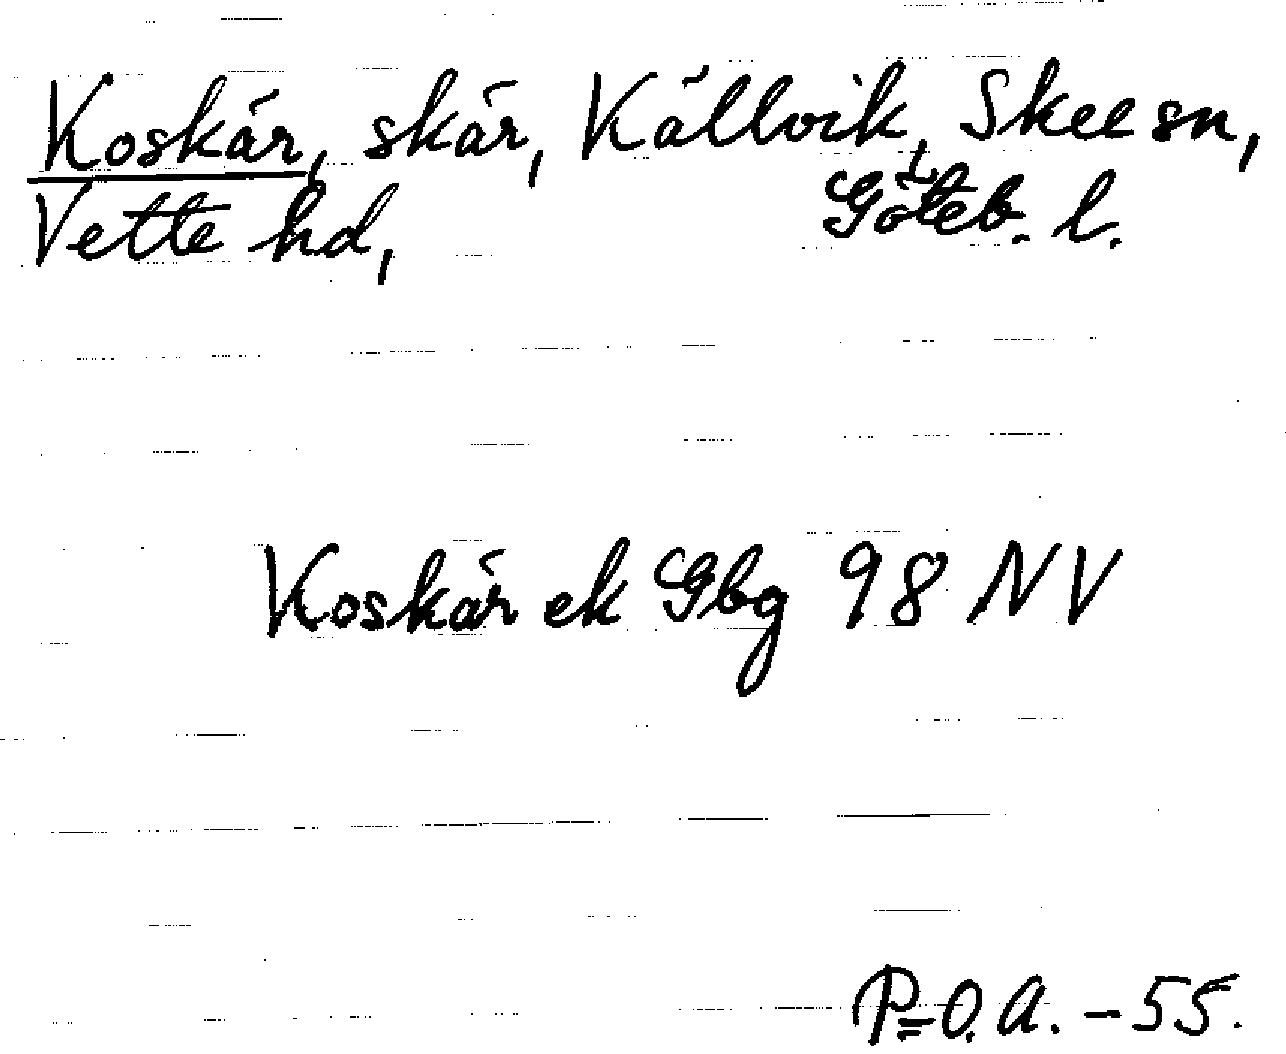 Koskär, skär, Källvik, Skee sn,
Vette hd, Göteb. l.
Koskär ek Gbg 98 NV
P=O.A. - 55.